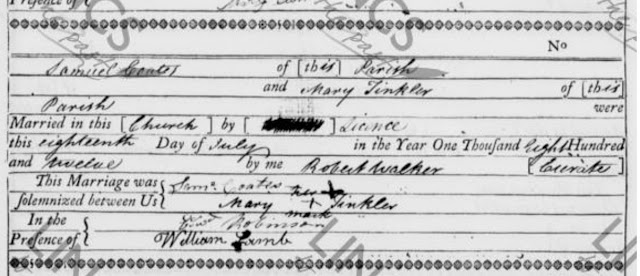 Presence of
No
Samuel Coates of [this] Parish
and Mary Tinkler of [this]
Parish were
Married in this [Church] by [ ] Licence
this eighteenth Day of July in the Year One Thousand Eight Hundred
and twelve by me Robert Walker [Curate]
This Marriage was Saml. Coates
solemnized between Us Mary her X mark Tinkler
In the Robinson
Presence of William Lamb